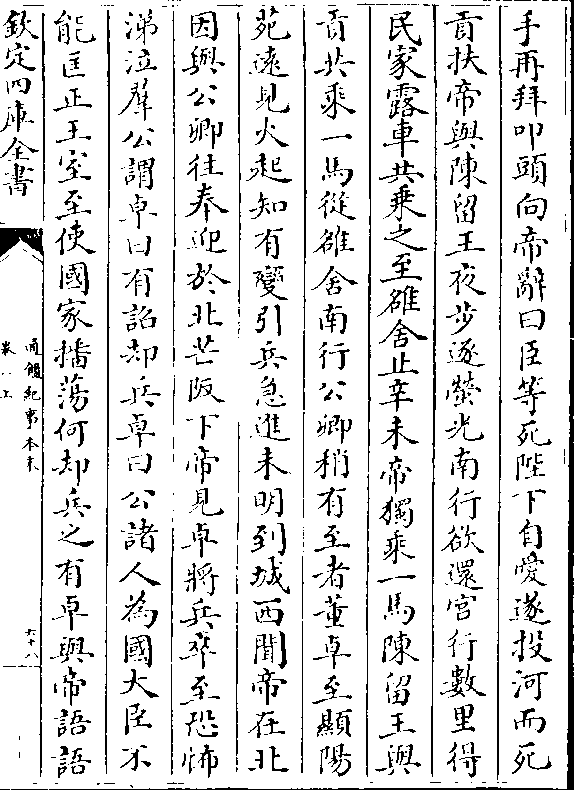 手再拜叩頭向帝辭曰臣等死陛下自愛遂投河而死
貢扶帝與陳留王夜步逐螢光南行欲還宫行數里得
民家露車共乘之至雒舍止辛未帝獨乘一馬陳留王與
貢共乘一馬從雒舍南行公卿稍有至者董卓至顯陽
苑遠見火起知有變引兵急進未明到城西聞帝在北
因與公卿往奉迎於北芒阪下帝見卓將兵卒至恐怖
涕泣羣公謂卓曰有詔却兵卓曰公諸人為國大臣不
能匡正王室至使國家播蕩何却兵之有卓與帝語語
欽定四庫全書
通鑑紀事本末
卷八上
六十八